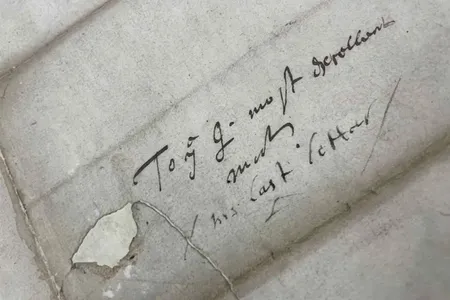 To yͤ Q. most Excellent
Maty
his last letter